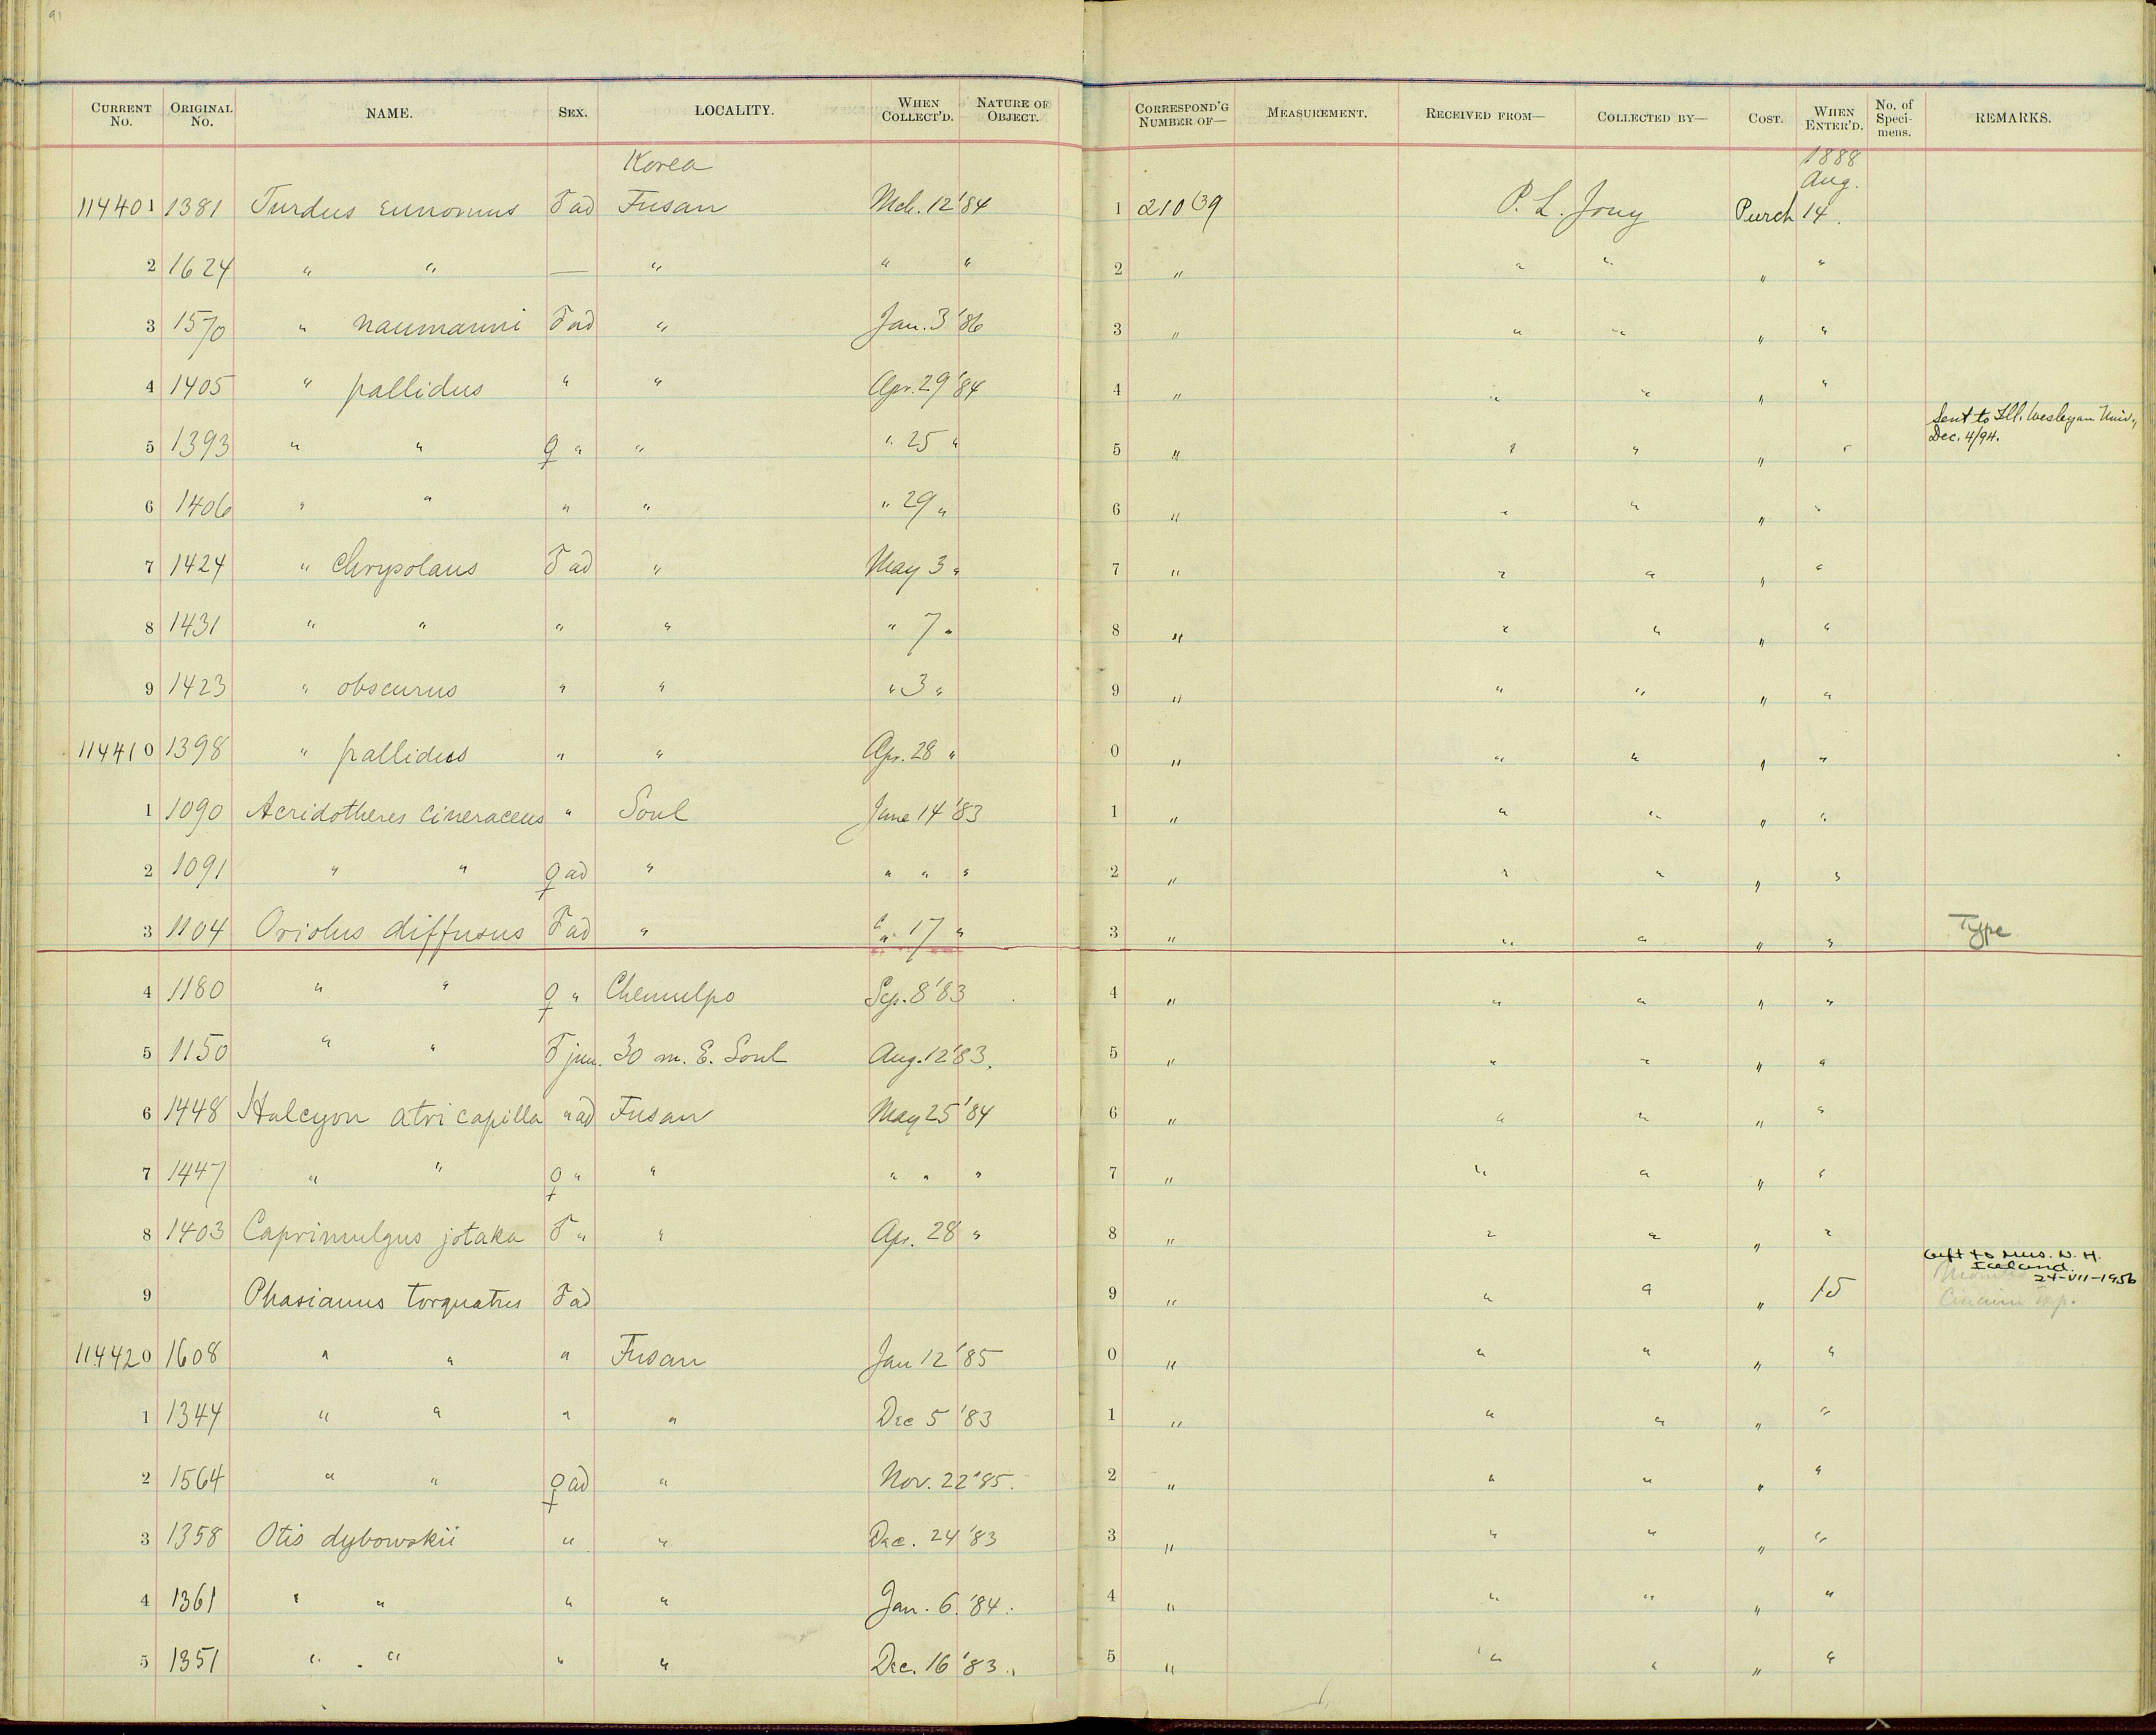 91
CURRENT No. ORIGINAL No. NAME. SEX. LOCALITY. WHEN COLLECT'D. NATURE OF OBJECT. CORRESPOND'G NUMBER OF— MEASUREMENT. RECEIVED FROM— COLLECTED BY— COST. WHEN ENTER'D. No. of Specimens. REMARKS.
Korea 1888
Aug.
114401 1381 Turdus eunomus ♂ ad Fusan Mch. 12 '84 1 21039 P. L. Jouy Purch 14.
2 1624 " " — " " " 2 " " " " "
3 1570 " naumanni ♂ ad " Jan. 3 '86 3 " " " " "
4 1405 " pallidus " " Apr. 29 '84 4 " " " " "
5 1393 " " ♀ " " " 25 " 5 " " " " " Sent to Ill. Wesleyan Univ., Dec. 4/94.
6 1406 " " " " " 29 " 6 " " " " "
7 1424 " chrysolaus ♂ ad " May 3 " 7 " " " " "
8 1431 " " " " " 7 " 8 " " " " "
9 1423 " obscurus " " " 3 " 9 " " " " "
114410 1398 " pallidus " " Apr. 28 " 0 " " " " "
1 1090 Acridotheres cineraceus " Soul June 14 '83 1 " " " " "
2 1091 " " ♀ ad " " " " 2 " " " " "
3 1104 Oriolus diffusus ♂ ad " " 17 " 3 " " " " " Type
4 1180 " " ♀ " Chemulpo Sep. 8 '83 4 " " " " "
5 1150 " " ♂ juv. 30 m. E. Soul Aug. 12 '83. 5 " " " " "
6 1448 Halcyon atricapilla " ad Fusan May 25 '84 6 " " " " "
7 1447 " " ♀ " " " " " 7 " " " " "
8 1403 Caprimulgus jotaka ♂ " " Apr. 28 " 8 " " " " "
9 Phasianus torquatus ♂ ad 9 " " " " 15 Gift to Mus. N. H. Iceland. 24-VII-1956
114420 1608 " " " Fusan Jan 12 '85 0 " " " " "
1 1344 " " " " Dec 5 '83 1 " " " " "
2 1564 " " ♀ ad " Nov. 22 '85. 2 " " " " "
3 1358 Otis dybowskii " " Dec. 24 '83 3 " " " " "
4 1361 " " " " Jan. 6. '84. 4 " " " " "
5 1351 " " " " Dec. 16 '83. 5 " " " " "